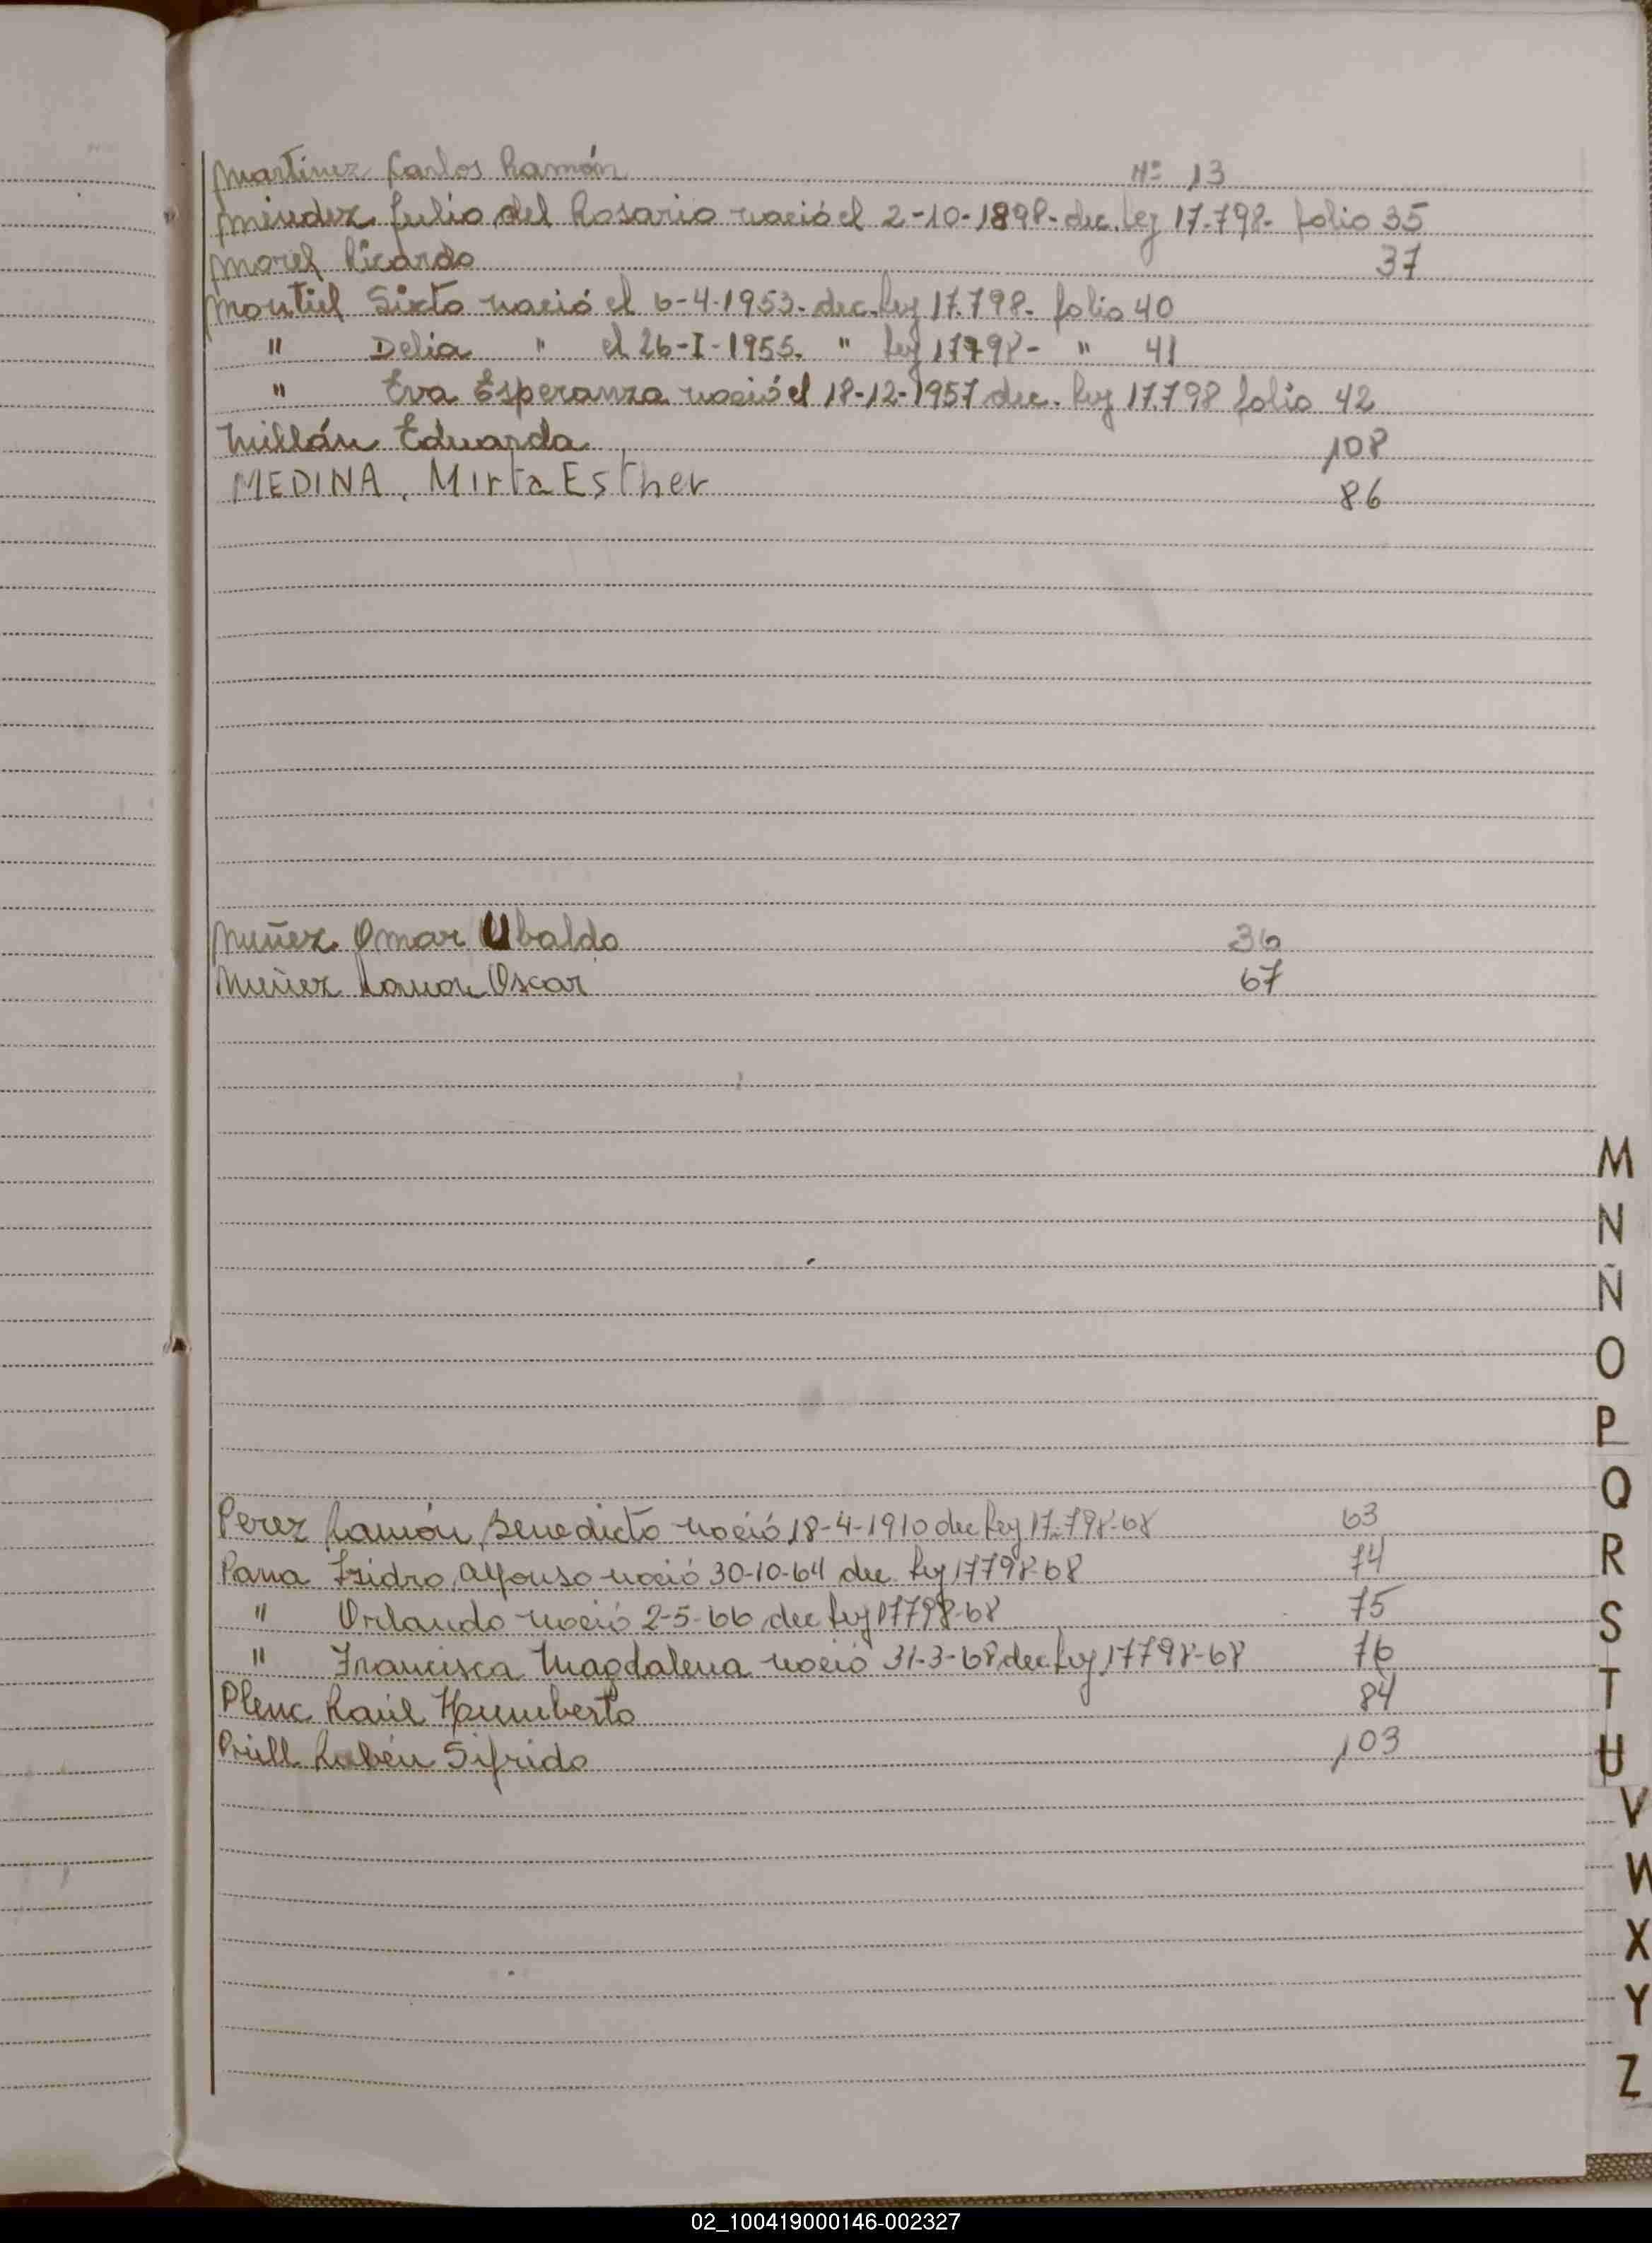 Martinez Carlos Ramón Nº 13
Méndez Julio del Rosario nació el 2-10-1898- dec. ley 17.798- folio 35
Morel Ricardo 37
Montiel Sixto nació el 6-4-1953- dec. ley 17.798- folio 40
" Delia " el 26-I-1955. " ley 17798- " 41
" Eva Esperanza nació el 18-12-1957 dec. ley 17.798 folio 42
Millán Eduarda 108
MEDINA, Mirta Esther 86
Nuñez Omar Ubaldo 36
Nuñez Ramon Oscar 67
M
N
Ñ
O
P
Q
Perez Ramón Benedicto nació 18-4-1910 dec ley 17.798-68 63
R
Pana Izidro Alfonso nació 30-10-64 dec ley 17798-68 74
" Orlando nació 2-5-66 dec ley 17798-68 75
S
" Francisca Magdalena nació 31-3-68 dec ley 17798-68 76
T
Plenc Raúl Humberto 84
U
Prill Rubén Sifrido 103
V
W
X
Y
Z
02_100419000146-002327